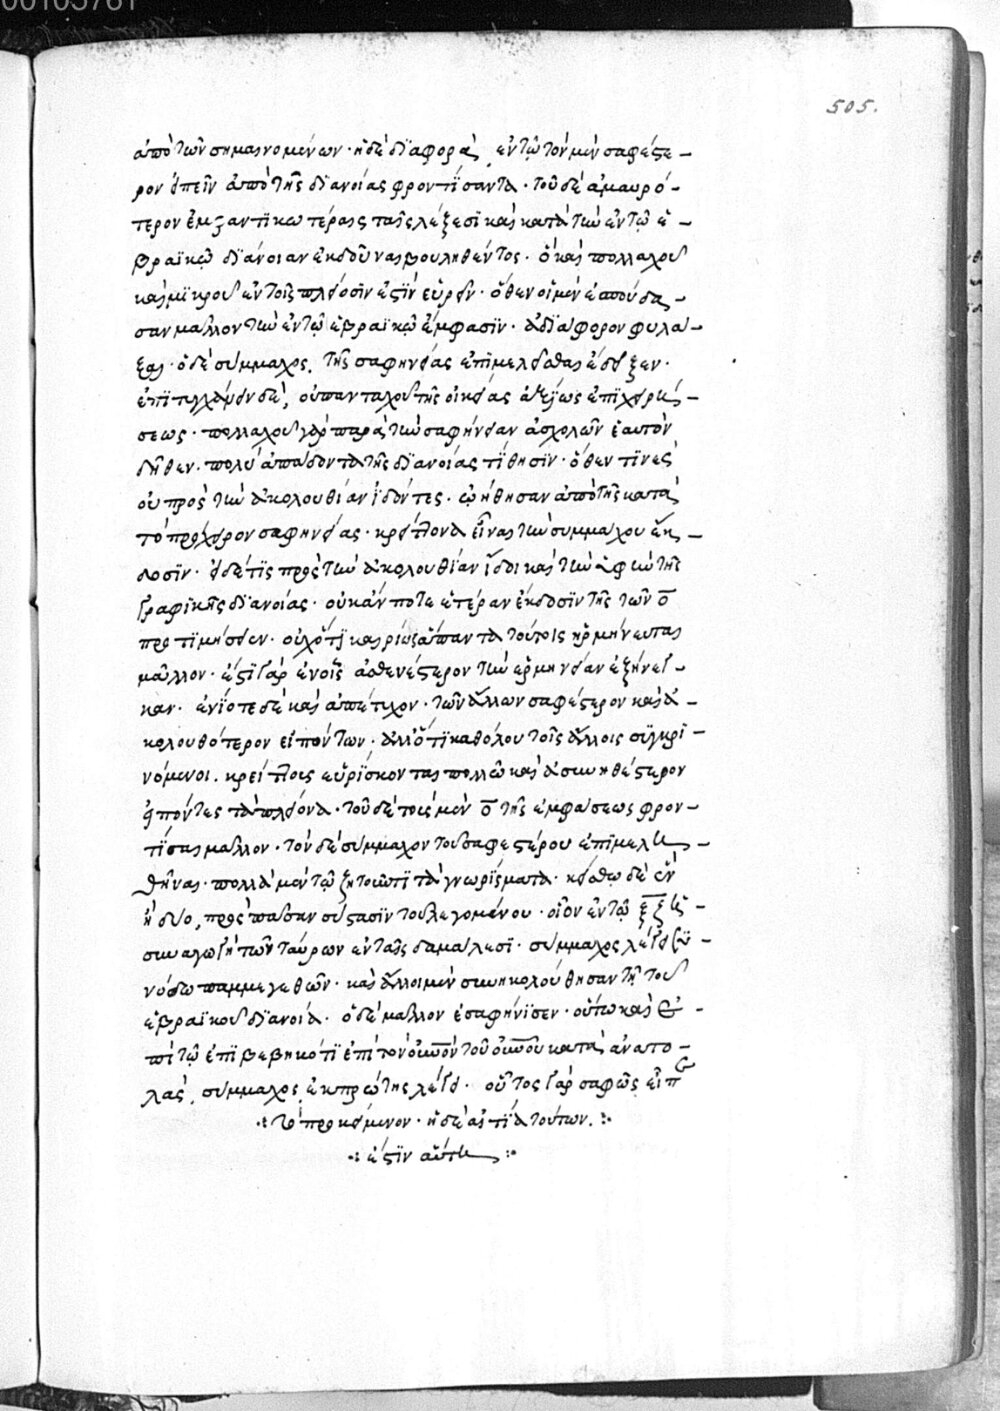 00105761
505.
ἀπὸ τῶν σημαινομένων· ἡ δὲ διαφορὰ, ἐν τῷ τὸν μὲν σαφέστε –
ρον εἰπεῖν ἀπὸ τῆς διανοίας φροντίσαντα· τοῦ δὲ ἀμαυρό –
τερον ἐμφαντικωτέραις ταῖς λέξεσι καὶ κατὰ τὴν ἐν τῷ ἑ –
βραϊκῷ διάνοιαν ἐκδοῦναι βουληθέντος· ὃ καὶ πολλαχοῦ
καὶ μικροῦ ἐν τοῖς πλείοσιν ἐστὶν εὑρεῖν· ὅθεν οἱ μὲν ἐσπούδα –
σαν μᾶλλον τὴν ἐν τῷ ἑβραϊκῷ ἔμφασιν· ἀδιάφορον φυλά –
ξαι· ὁ δὲ σύμμαχος, τῆς σαφηνείας ἐπιμελεῖσθαι ἔδοξεν·
ἐπιτυγχάνειν δὲ, οὐ πανταχοῦ τῆς οἰκείας ἀξίως ἐπιχειρή –
σεως· πολλαχοῦ γὰρ παρὰ τὴν σαφήνειαν ἀσχολῶν ἑαυτὸν
δῆθεν· πολὺ ἀπᾴδοντα τῆς διανοίας τίθησιν· ὅθεν τινὲς
οὐ πρὸς τὴν ἀκολουθίαν ἰδόντες· ᾠήθησαν ἀπὸ τῆς κατὰ
τὸ πρόχειρον σαφηνείας· κρείττονα εἶναι τὴν συμμάχου ἔκ –
δοσιν· εἰ δέ τις πρὸς τὴν ἀκολουθίαν ἴδοι καὶ τὴν ἀφὴν τῆς
γραφικῆς διανοίας· οὐκ ἄν ποτε ἑτέραν ἔκδοσιν τῆς τῶν ο̅
προτιμήσειεν· οὐχ ὅτι καιρίως ἅπαντα τούτοις ἡρμήνευται
μᾶλλον· ἔστι γὰρ ἐν οἷς ἀσθενέστερον τὴν ἑρμηνείαν ἐξήνεγ –
καν· ἐνίοτε δὲ καὶ ἀπέτυχον· τῶν ἄλλων σαφέστερον καὶ ἀ –
κολουθότερον εἰπόντων· ἀλλ' ὅτι καθόλου τοῖς ἄλλοις συγκρι –
νόμενοι. κρείττους εὑρίσκονται πολλῷ καὶ ἀσυνηθέστερον
εἰπόντες τὰ πλείονα· τοῦ δὲ τοὺς μὲν ο̅ τῆς ἐμφάσεως φρον –
τίσαι μᾶλλον· τὸν δὲ σύμμαχον τοῦ σαφεστέρου ἐπιμελη –
θῆναι· πολλὰ μὲν τῷ ζητοῦντι τὰ γνωρίσματα· κείσθω δὲ ἓν
ἢ δύο, πρὸς πᾶσαν σύστασιν τοῦ λεγομένου· οἷον ἐν τῷ ξ̅ζ̅
συναγωγὴ τῶν ταύρων ἐν ταῖς δαμάλεσι· σύμμαχος λέγει συ
νόδῳ παμμεγεθῶν· καὶ ἄλλοι μὲν συνηκολούθησαν τῇ τοῦ
ἑβραϊκοῦ διανοίᾳ· ὁ δὲ μᾶλλον ἐσαφήνισεν· οὕτω καὶ ἐ –
πὶ τῷ ἐπιβεβηκότι ἐπὶ τὸν οὐνὸν τοῦ οὐνοῦ κατὰ ἀνατο –
λὰς, σύμμαχος, ἐκ πρώτης λέγει· οὗτος γὰρ σαφῶς εἶπε
·: τὸ προκείμενον· ἡ δὲ αἰτία τούτων. :·
·: ἐστὶν αὕτη :·